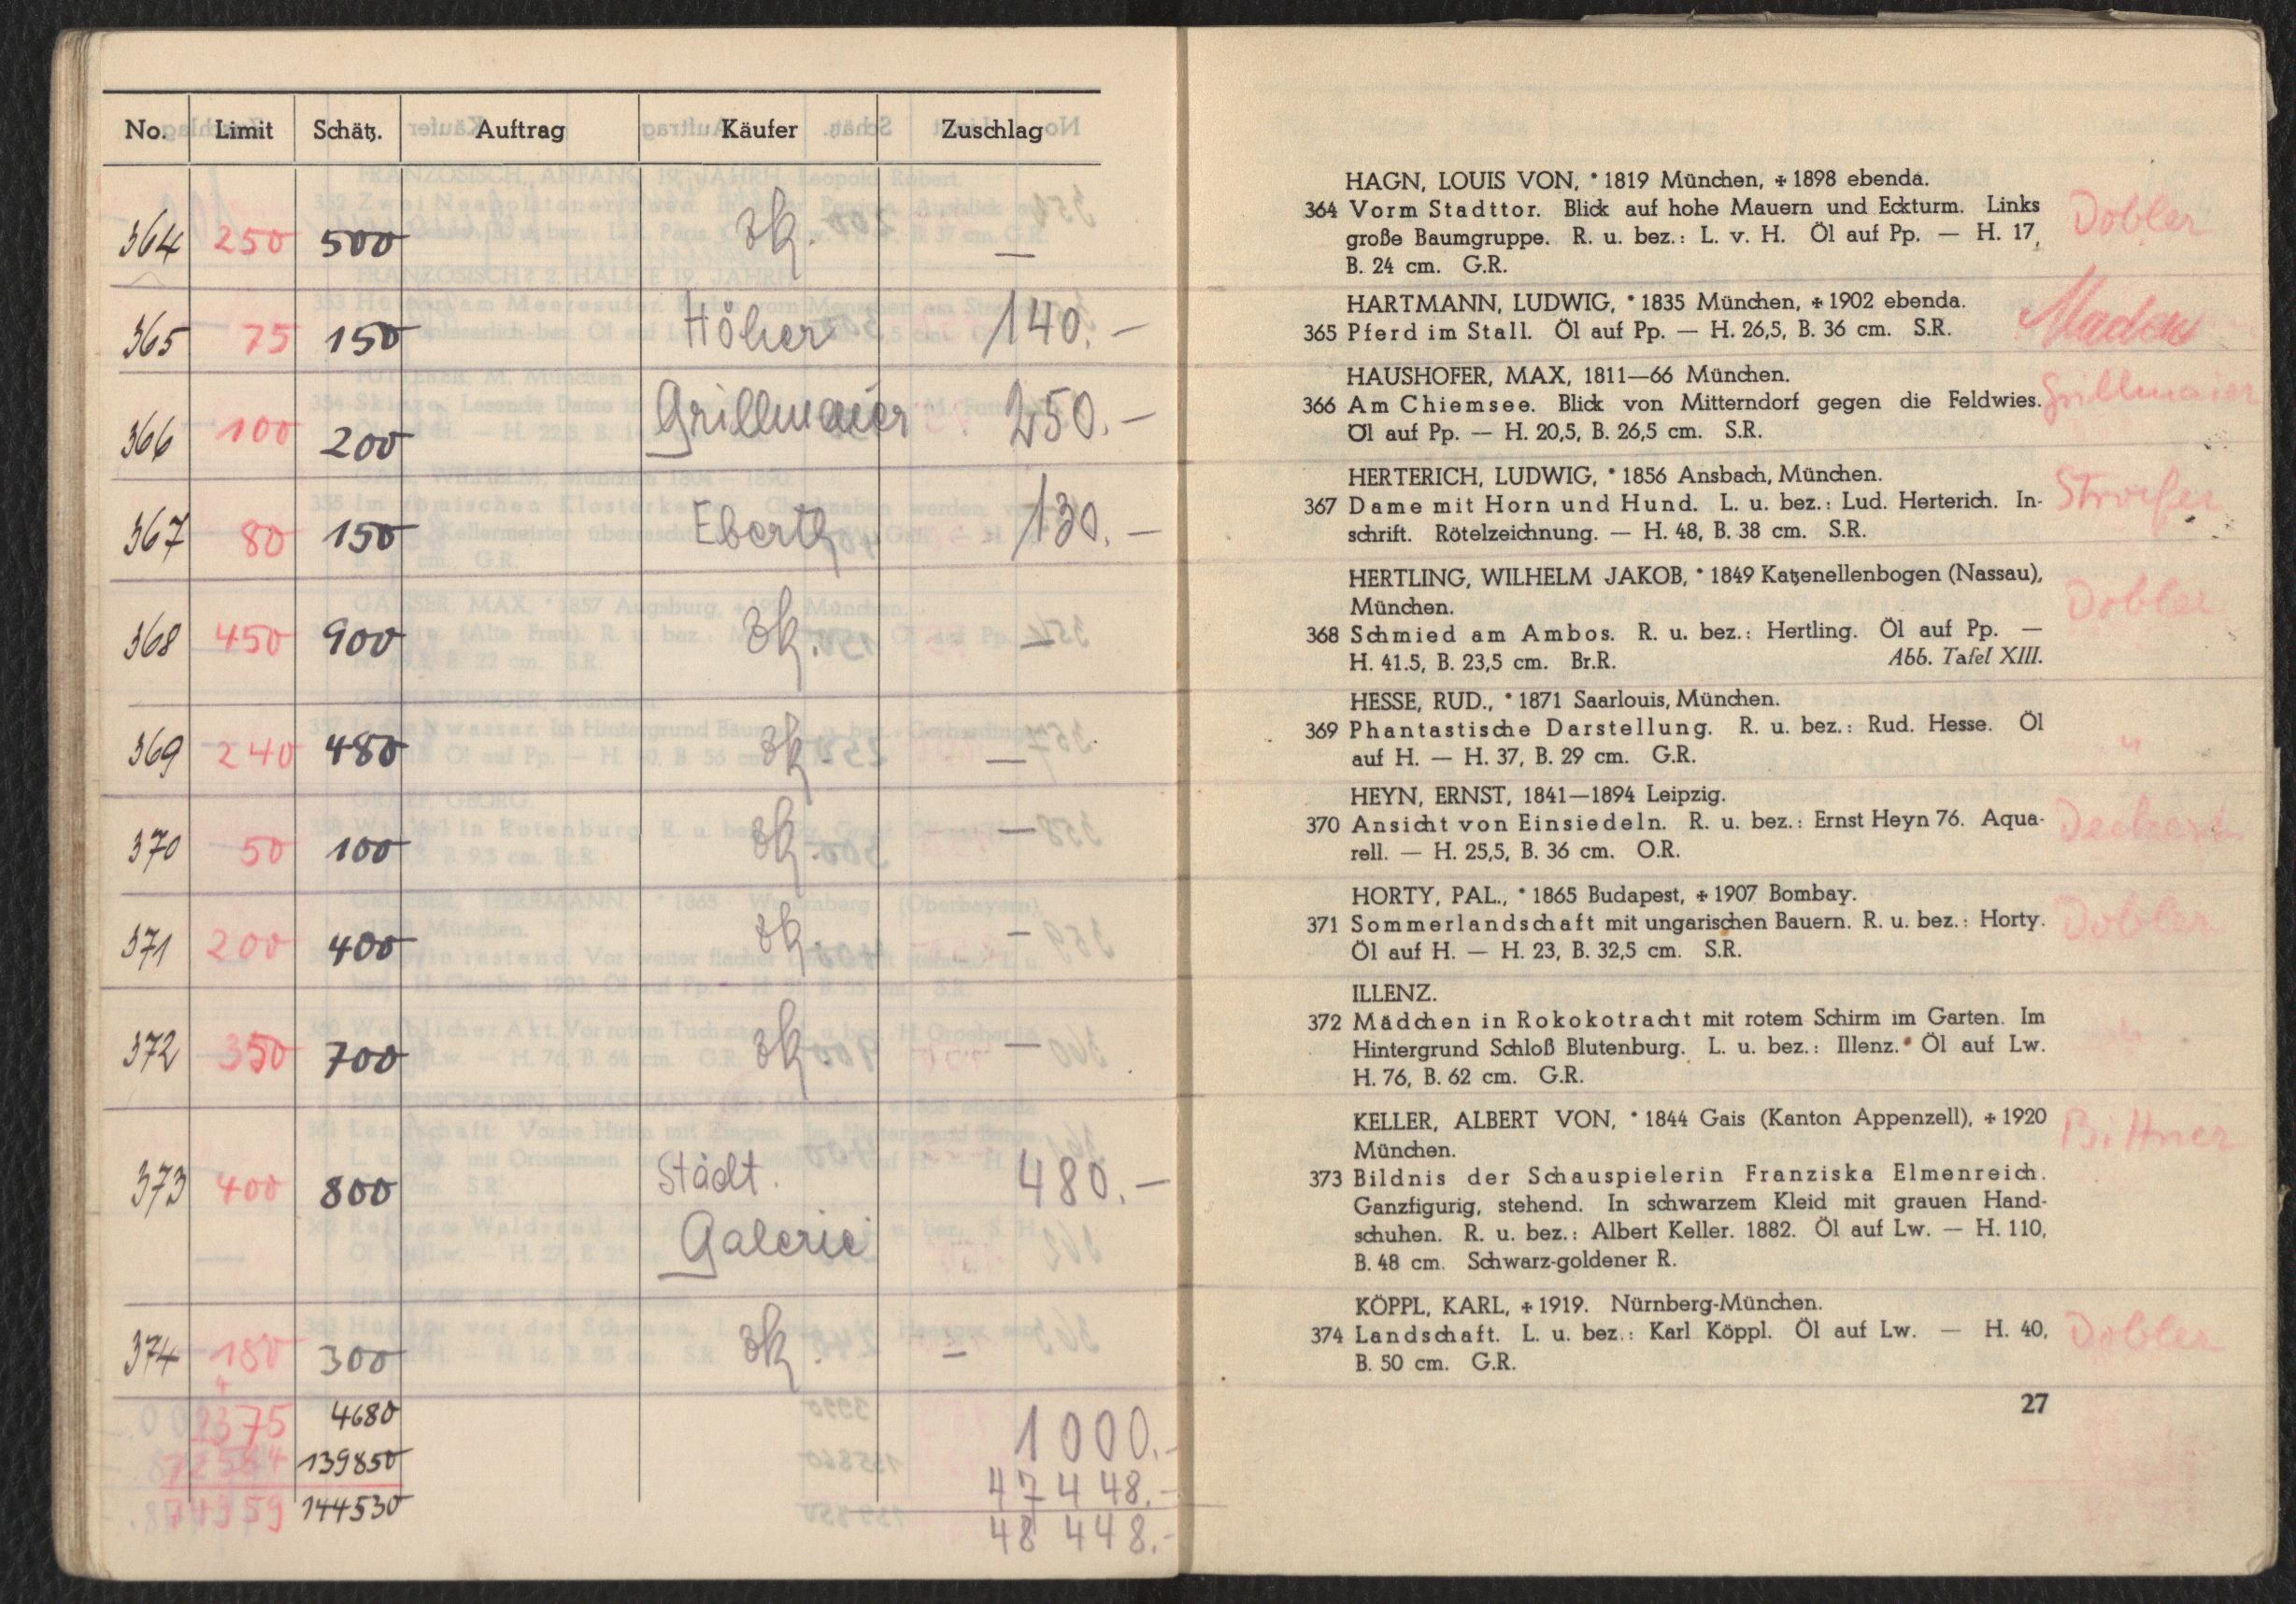 No. Limit Schätz. Auftrag Käufer Zuschlag
364 250 500 zk. —
365 75 150 Höher 140.—
366 100 200 Grillmaier 250.—
367 80 150 Eberth 130.—
368 450 900 zk. —
369 240 480 zk. —
370 50 100 zk. —
371 200 400 zk. —
372 350 700 zk. —
373 400 800 Städt. 480.—
Galerie
374 180 300 zk. —
2375 4680 1000.-
139850 47448.-
144530 48448.-
HAGN, LOUIS VON, * 1819 München, ✠ 1898 ebenda.
364 Vorm Stadttor. Blick auf hohe Mauern und Eckturm. Links Dobler
große Baumgruppe. R. u. bez.: L. v. H. Öl auf Pp. — H. 17,
B. 24 cm. G.R.
HARTMANN, LUDWIG, * 1835 München, ✠ 1902 ebenda.
365 Pferd im Stall. Öl auf Pp. — H. 26,5, B. 36 cm. S.R.
HAUSHOFER, MAX, 1811—66 München.
366 Am Chiemsee. Blick von Mitterndorf gegen die Feldwies. Grillmaier
Öl auf Pp. — H. 20,5, B. 26,5 cm. S.R.
HERTERICH, LUDWIG, * 1856 Ansbach, München.
367 Dame mit Horn und Hund. L. u. bez.: Lud. Herterich. In-
schrift. Rötelzeichnung. — H. 48, B. 38 cm. S.R.
HERTLING, WILHELM JAKOB, * 1849 Katzenellenbogen (Nassau),
München. Dobler
368 Schmied am Ambos. R. u. bez.: Hertling. Öl auf Pp. —
H. 41.5, B. 23,5 cm. Br.R. Abb. Tafel XIII.
HESSE, RUD., * 1871 Saarlouis, München.
369 Phantastische Darstellung. R. u. bez.: Rud. Hesse. Öl "
auf H. — H. 37, B. 29 cm. G.R.
HEYN, ERNST, 1841—1894 Leipzig.
370 Ansicht von Einsiedeln. R. u. bez.: Ernst Heyn 76. Aqua-
rell. — H. 25,5, B. 36 cm. O.R.
HORTY, PAL., * 1865 Budapest, ✠ 1907 Bombay.
371 Sommerlandschaft mit ungarischen Bauern. R. u. bez.: Horty. Dobler
Öl auf H. — H. 23, B. 32,5 cm. S.R.
ILLENZ.
372 Mädchen in Rokokotracht mit rotem Schirm im Garten. Im "
Hintergrund Schloß Blutenburg. L. u. bez.: Illenz. Öl auf Lw.
H. 76, B. 62 cm. G.R.
KELLER, ALBERT VON, * 1844 Gais (Kanton Appenzell), ✠ 1920 Bittner
München.
373 Bildnis der Schauspielerin Franziska Elmenreich.
Ganzfigurig, stehend. In schwarzem Kleid mit grauen Hand-
schuhen. R. u. bez.: Albert Keller. 1882. Öl auf Lw. — H. 110,
B. 48 cm. Schwarz-goldener R.
KÖPPL, KARL, ✠ 1919. Nürnberg-München.
374 Landschaft. L. u. bez.: Karl Köppl. Öl auf Lw. — H. 40, Dobler
B. 50 cm. G.R.
27